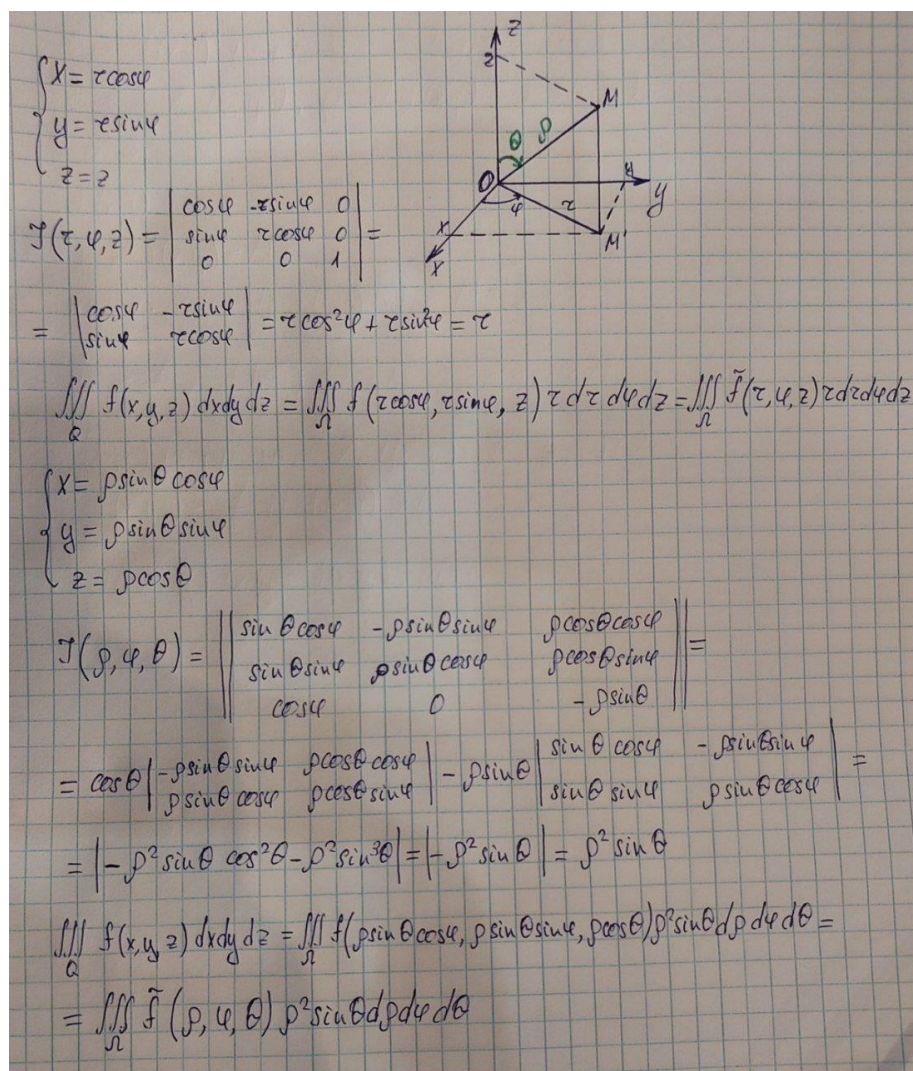 z
{ x = rcosφ
z
M
y = rsinφ
θ ρ
z = z
O
y
y
φ r
J(r, φ, z) = | cosφ -rsinφ 0 |
| sinφ rcosφ 0 | =
| 0 0 1 |
x
M'
x
= | cosφ -rsinφ |
| sinφ rcosφ | = rcos²φ + rsin²φ = r
∭_Q f(x,y,z) dxdydz = ∭_Ω f(rcosφ, rsinφ, z) r dr dφ dz = ∭_Ω f̃(r, φ, z) r dr dφ dz
{ x = ρsinθcosφ
y = ρsinθsinφ
z = ρcosθ
J(ρ, φ, θ) = || sinθcosφ -ρsinθsinφ ρcosθcosφ || =
|| sinθsinφ ρsinθcosφ ρcosθsinφ ||
|| cosφ 0 -ρsinθ ||
= cosθ | -ρsinθsinφ ρcosθcosφ | - ρsinθ | sinθcosφ -ρsinθsinφ | =
| ρsinθcosφ ρcosθsinφ | | sinθsinφ ρsinθcosφ |
= |-ρ²sinθ cos²θ - ρ²sin³θ| = |-ρ²sinθ| = ρ²sinθ
∭_Q f(x,y,z) dxdydz = ∭_Ω f(ρsinθcosφ, ρsinθsinφ, ρcosθ)ρ²sinθdρdφdθ =
= ∭_Ω f̃(ρ, φ, θ) ρ²sinθdρdφdθ